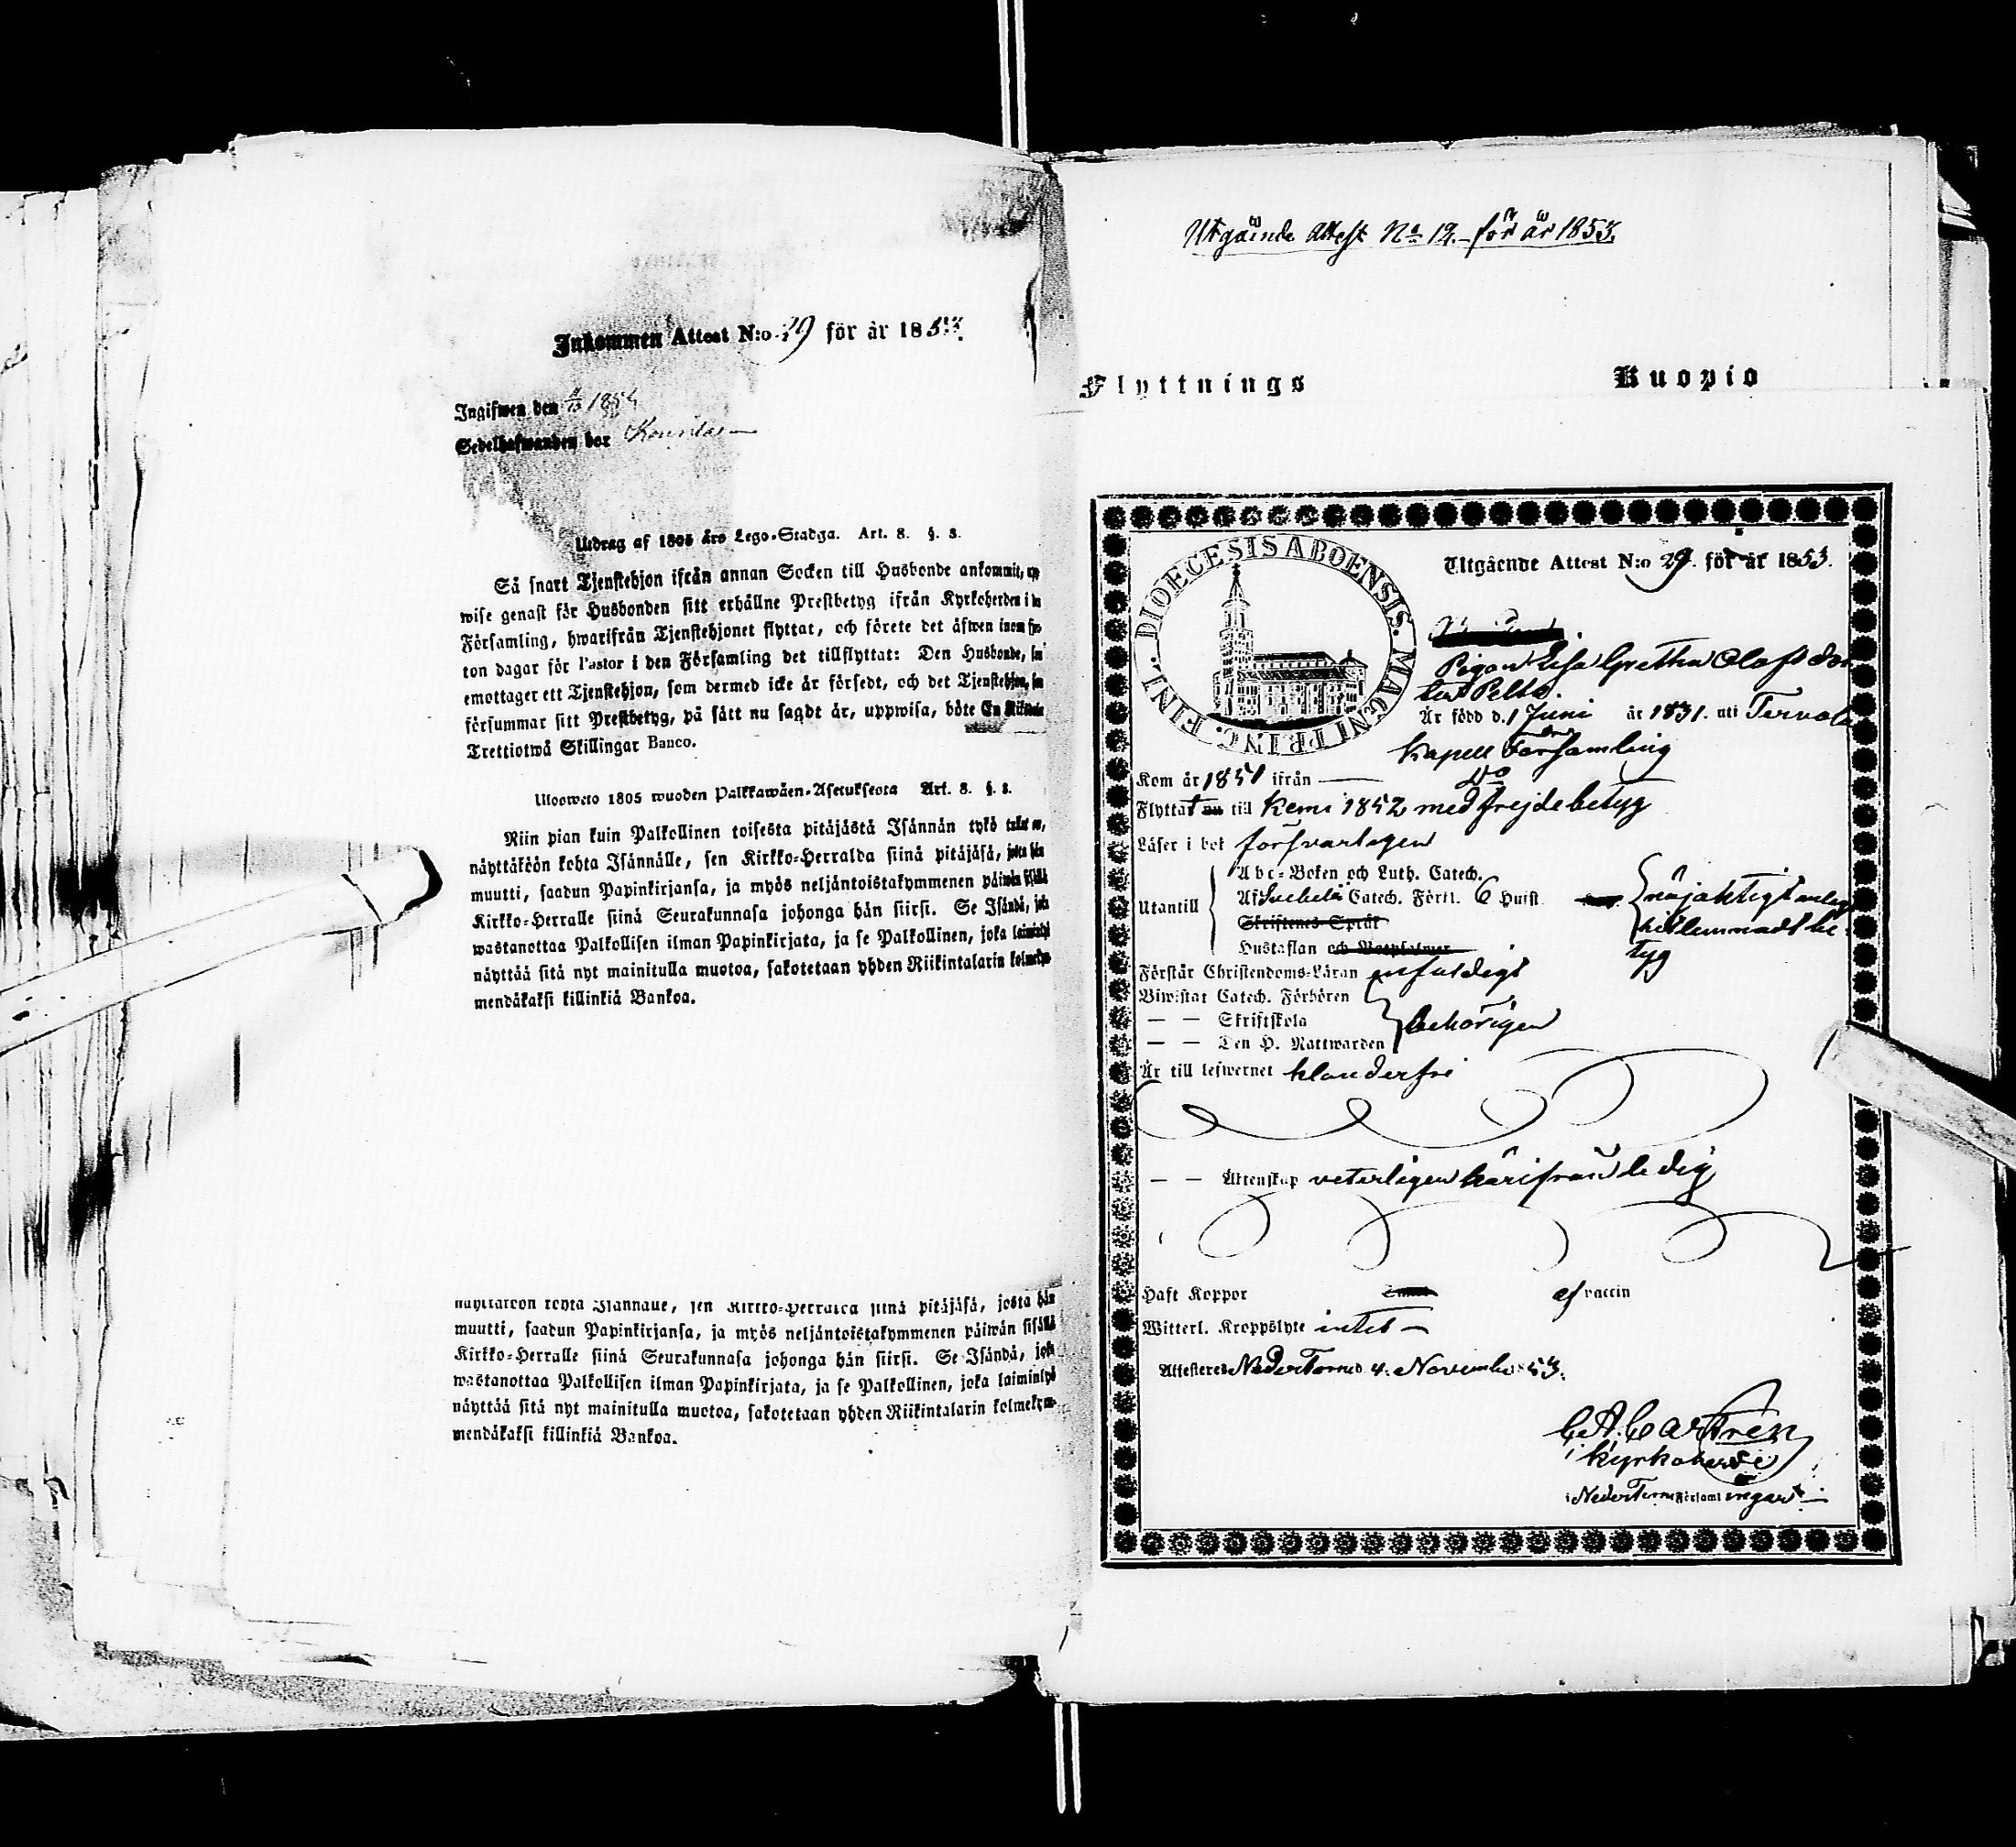 Inkommen Attest N:o 29 för år 1853.
Ingifwen den 1854
Sedelhafwanden bor
Utdrag af 1805 års Lego-Stadga. Art. 8. §. 8.
Så snart Tjenstehjon ifrån annan Socken till Husbonde ankommit, upp
wise genast för Husbonden sitt erhållne Prestbetyg ifrån Kyrkoherden i den
Församling, hwarifrån Tjenstehjonet flyttat, och förete det äfwen inom fjor-
ton dagar för Pastor i den Församling det tillflyttat: Den Husbonde, som
emottager ett Tjenstehjon, som dermed icke är försedt, och det Tjenstehjon, som
försummar sitt Prestbetyg, på sätt nu sagdt är, uppwisa, böte En Riksdaler
Trettiotwå Skillingar Banco.
Ulosweto 1805 wuoden Palkkawäen-Asetuksesta Art. 8. §. 8.
Niin pian kuin Palkollinen toisesta pitäjästä Isännän tykö tullut on,
näyttäköön kohta Isännälle, sen Kirkko-Herralda siinä pitäjäsä, josta hän
muutti, saadun Papinkirjansa, ja myös neljäntoistakymmenen päiwän sisällä
Kirkko-Herralle siinä Seurakunnasa johonga hän siirsi. Se Isändä, joka
wastanottaa Palkollisen ilman Papinkirjata, ja se Palkollinen, joka laiminlyö
näyttää sitä nyt mainitulla muotoa, sakotetaan yhden Riikintalarin kolmekym-
mendäkaksi killinkiä Bankoa.
näyttäköön kohta Isännälle, sen Kirkko-Herralda siinä pitäjäsä, josta hän
muutti, saadun Papinkirjansa, ja myös neljäntoistakymmenen päiwän sisällä
Kirkko-Herralle siinä Seurakunnasa johonga hän siirsi. Se Isändä, joka
wastanottaa Palkollisen ilman Papinkirjata, ja se Palkollinen, joka laiminlyö
näyttää sitä nyt mainitulla muotoa, sakotetaan yhden Riikintalarin kolmekym-
mendäkaksi killinkiä Bankoa.
Utgående Attest No 12. för år 1853.
Flyttnings Kuopio
DIOECESIS ABOENSIS. MAGNI PRINC. FINL.
Utgående Attest N:o 29. för år 1853.
Pigan Lisa Gretha Olofsdot
ter Pelto.
Är född d. 1 Juni år 1831. uti Tervola
Kapell Församling
Kom år 1851 ifrån — do
Flyttat nu till Kemi 1852 med frejdebetyg
Läser i bok försvarligen
Utantill
Abc-Boken och Luth. Catech.
Af Svebelii Catech. Förkl. 6 Hufst.
Skriftenes Språk
Hustaflan och Botpsalmer
nöjaktigt enligt
hitlemnadt be-
tyg
Förstår Christendoms-Läran enfaldigt
Biwistat Catech. Förhören
— — Skriftskola
— — Den H. Nattwarden
behörigen
Är till lefwernet klanderfri
— — Äktenskap veterligen härifrån ledig
Haft Koppor af vaccin
Witterl. Kroppslyte intet —
Attesteras Neder Torneå d. 4. November 53.
C. A. Castrén
Kyrkoherde
i Neder Torneå Församlingar